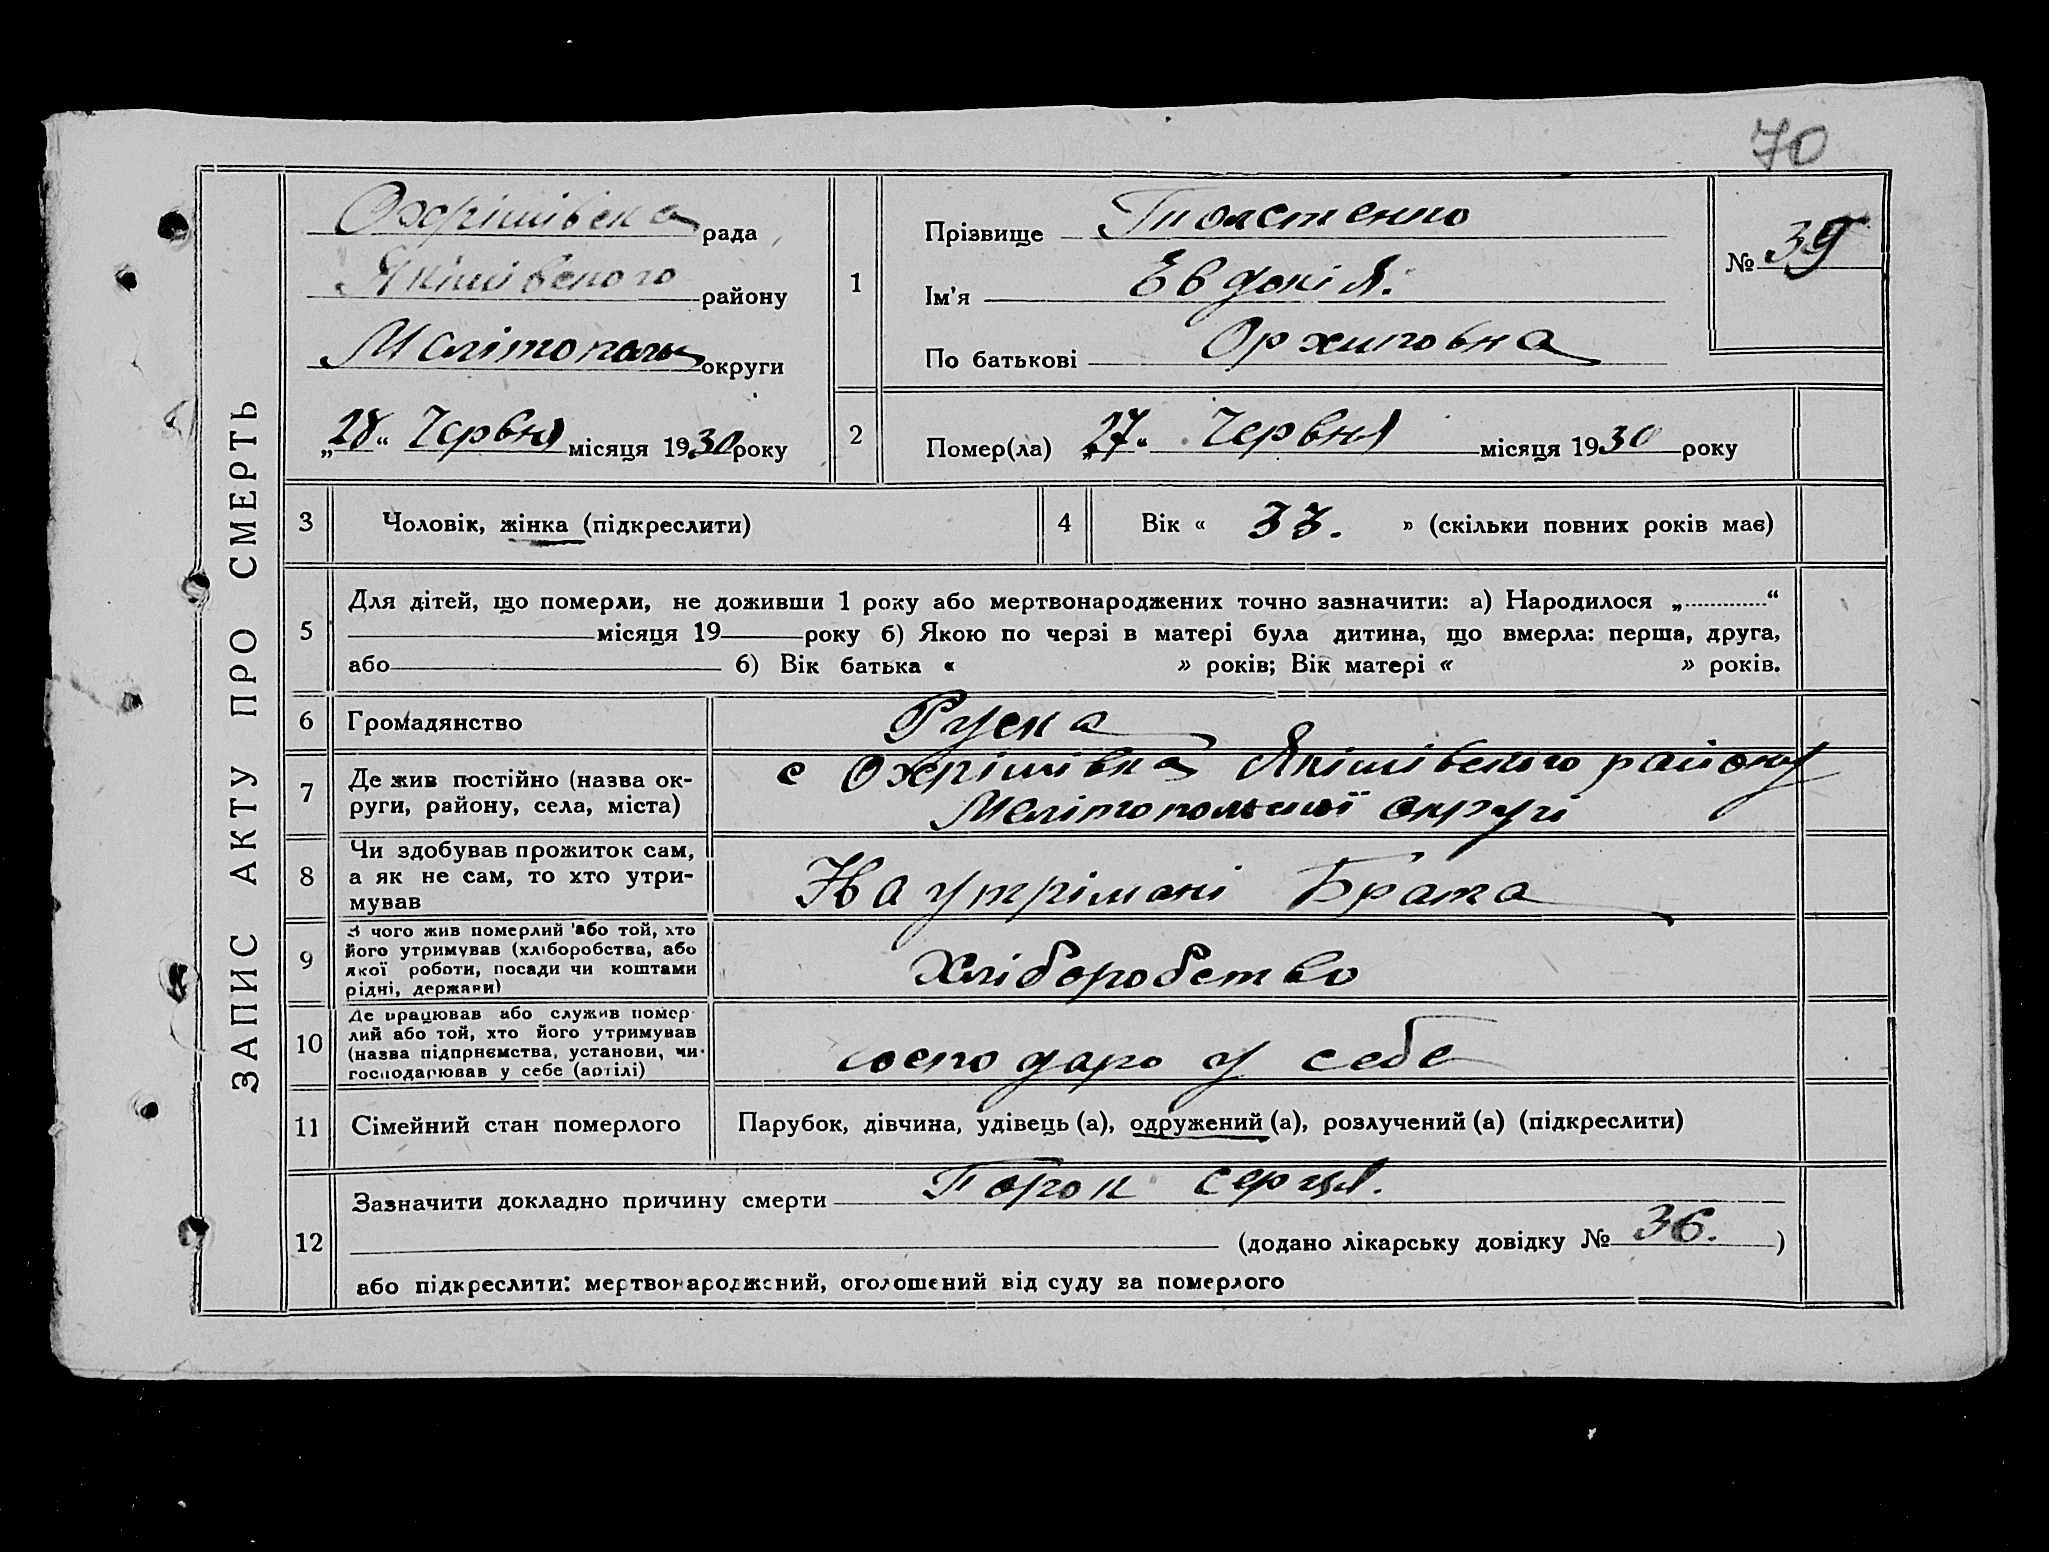 70
ЗАПИС АКТУ ПРО СМЕРТЬ
Охрімівска рада
Якімівского району
Меліtopoль округи
„28“ Червня місяця 1930 року
1
Прізвище Толстенко
Ім'я Евдокія.
По батькові Орхиповна
№ 39
2
Помер(ла) „27“ Червня місяця 1930 року
3 Чоловік, жінка (підкреслити)
4 Вік « 33. » (скільки повних років має)
5
Для дітей, що померли, не доживши 1 року або мертвонароджених точно зазначити: а) Народилося „ “
місяця 19 року б) Якою по черзі в матері була дитина, що вмерла: перша, друга,
або б) Вік батька « » років; Вік матері « » років.
6 Громадянство Руска
7 Де жив постійно (назва ок-
руги, району, села, міста)
с Охрімівка Якімівского району
Мелітопольскої округі
8 Чи здобував прожиток сам,
а як не сам, то хто утри-
мував
На утрімані Брата
9 З чого жив померлий або той, хто
його утримував (хліборобства, або
якої роботи, посади чи коштами
рідні, держави)
Хліборобство
10 Де працював або служив помер-
лий або той, хто його утримував
(назва підприємства, установи, чи
господарював у себе (артілі)
господарь у себе
11 Сімейний стан померлого Парубок, дівчина, удівець (а), одружений (а), розлучений (а) (підкреслити)
12
Зазначити докладно причину смерти Порок серця.
(додано лікарську довідку № 36. )
або підкреслити: мертвонароджений, оголошений від суду за померлого